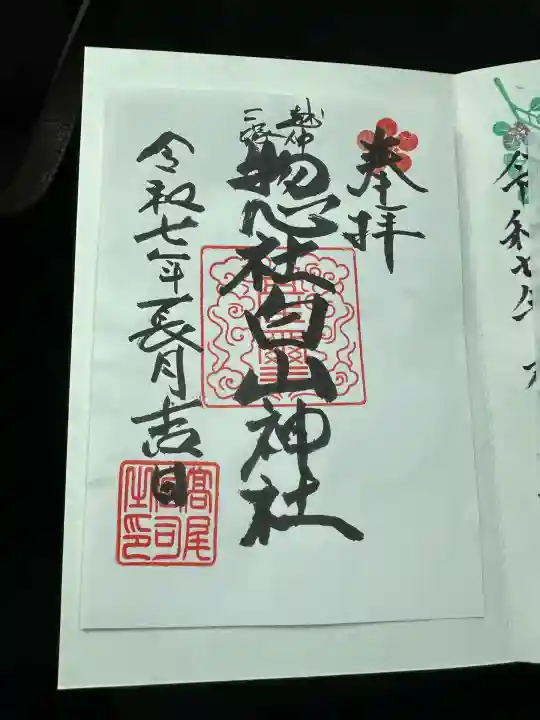 奉拝
越中
一宮
惣社白山神社
令和七年長月吉日
髙尾
宮司
之印
令和七年